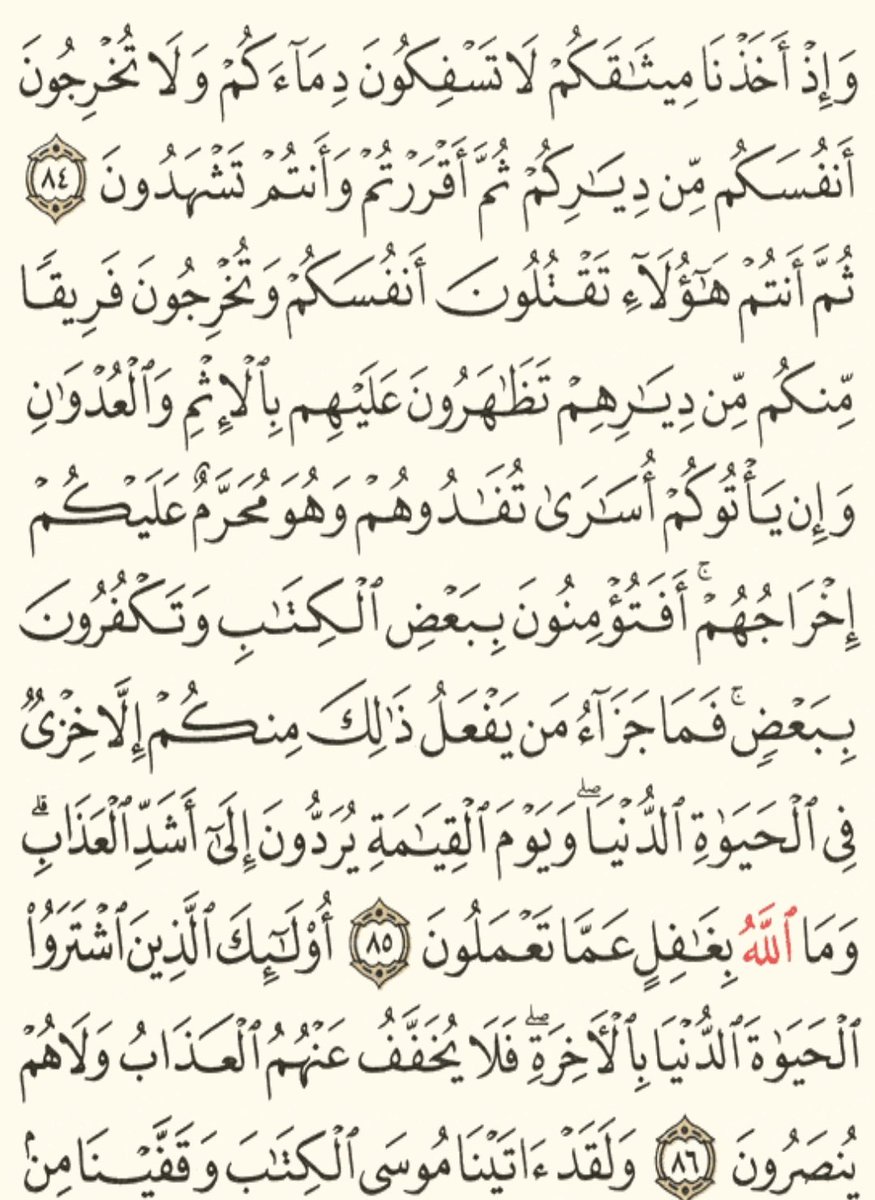 وَإِذْ أَخَذْنَا مِيثَٰقَكُمْ لَا تَسْفِكُونَ دِمَآءَكُمْ وَلَا تُخْرِجُونَ
أَنفُسَكُم مِّن دِيَٰرِكُمْ ثُمَّ أَقْرَرْتُمْ وَأَنتُمْ تَشْهَدُونَ ٨٤
ثُمَّ أَنتُمْ هَٰٓؤُلَآءِ تَقْتُلُونَ أَنفُسَكُمْ وَتُخْرِجُونَ فَرِيقًا
مِّنكُم مِّن دِيَٰرِهِمْ تَظَٰهَرُونَ عَلَيْهِم بِٱلْإِثْمِ وَٱلْعُدْوَٰنِ
وَإِن يَأْتُوكُمْ أُسَٰرَىٰ تُفَٰدُوهُمْ وَهُوَ مُحَرَّمٌ عَلَيْكُمْ
إِخْرَاجُهُمْ ۚ أَفَتُؤْمِنُونَ بِبَعْضِ ٱلْكِتَٰبِ وَتَكْفُرُونَ
بِبَعْضٍ ۚ فَمَا جَزَآءُ مَن يَفْعَلُ ذَٰلِكَ مِنكُمْ إِلَّا خِزْىٌ
فِى ٱلْحَيَوٰةِ ٱلدُّنْيَا ۖ وَيَوْمَ ٱلْقِيَٰمَةِ يُرَدُّونَ إِلَىٰٓ أَشَدِّ ٱلْعَذَابِ ۗ
وَمَا ٱللَّهُ بِغَٰفِلٍ عَمَّا تَعْمَلُونَ ٨٥ أُو۟لَٰٓئِكَ ٱلَّذِينَ ٱشْتَرَوُا۟
ٱلْحَيَوٰةَ ٱلدُّنْيَا بِٱلْأَخِرَةِ ۖ فَلَا يُخَفَّفُ عَنْهُمُ ٱلْعَذَابُ وَلَا هُمْ
يُنصَرُونَ ٨٦ وَلَقَدْ ءَاتَيْنَا مُوسَى ٱلْكِتَٰبَ وَقَفَّيْنَا مِنۢ